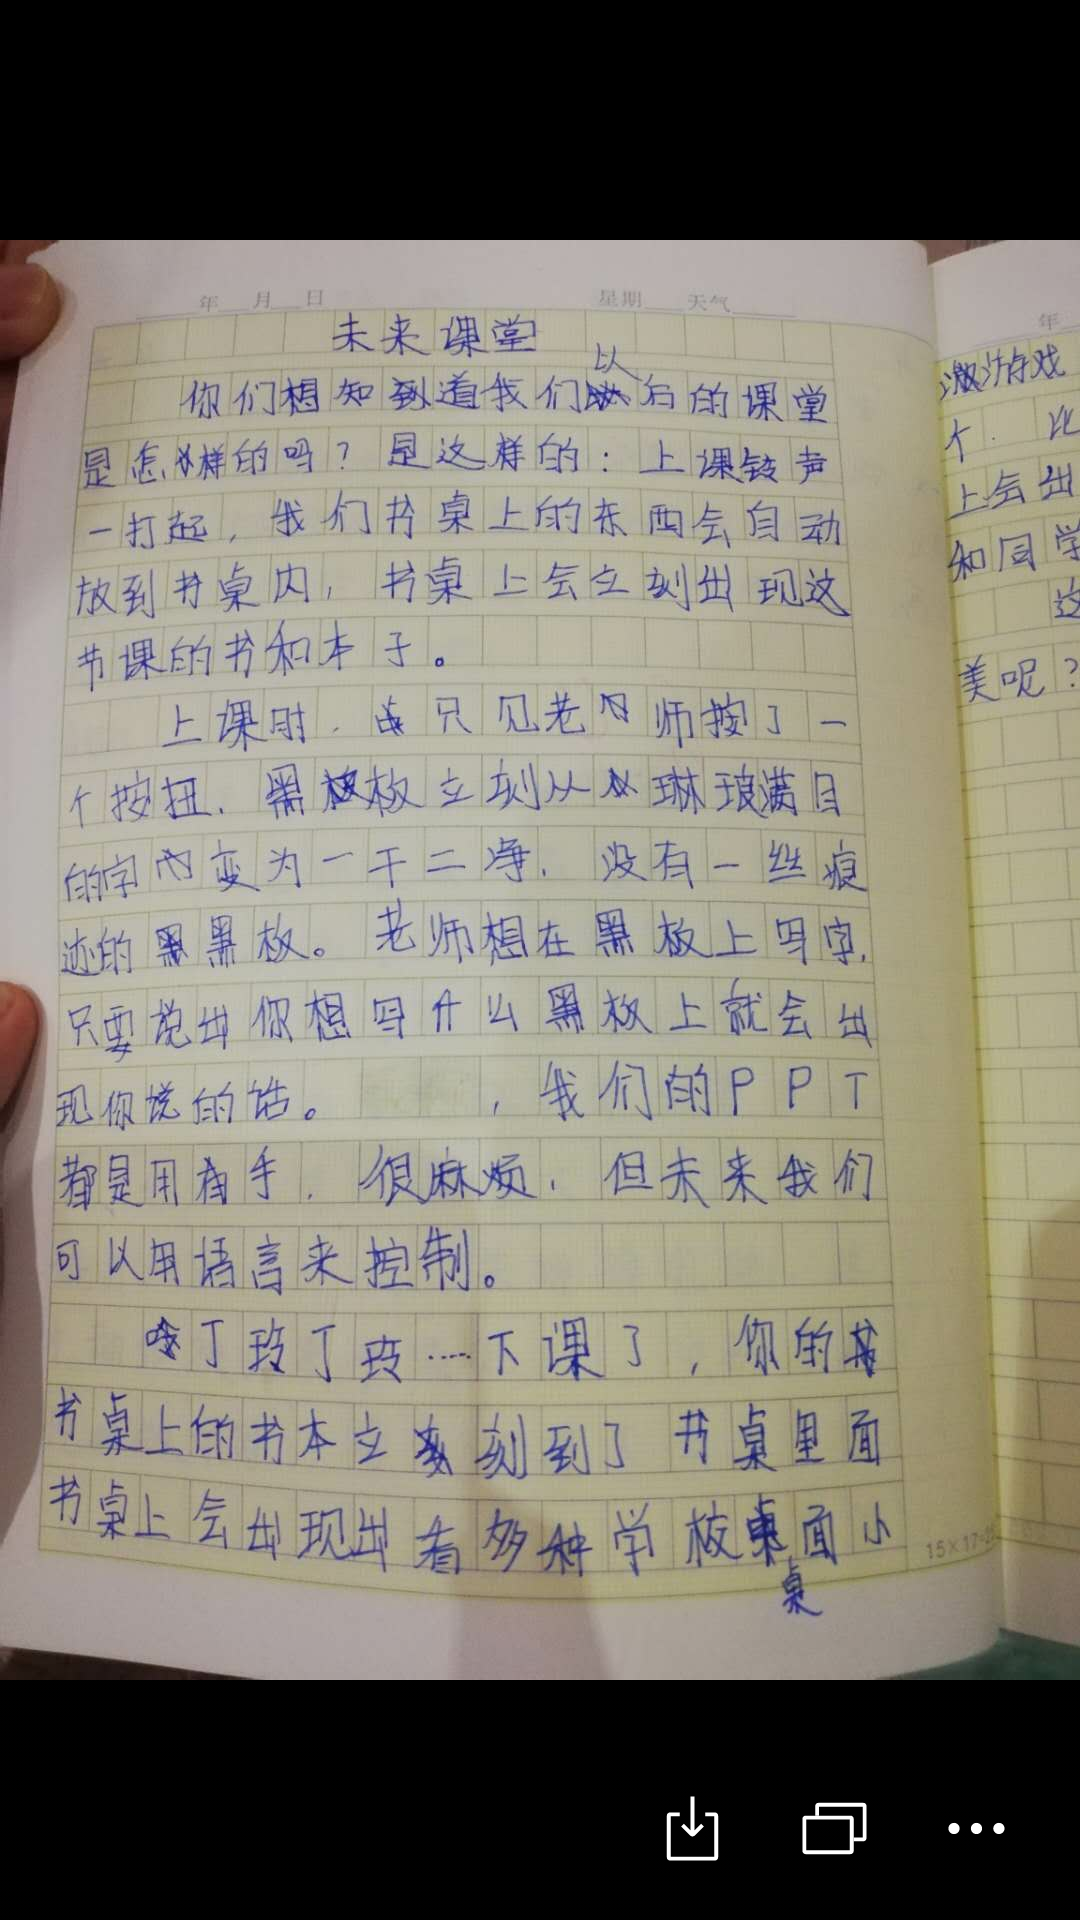 年 月 日 星期 天气
未来课堂
以
你们想知到道我们后的课堂
是怎样的吗？是这样的：上课铃声
一打起，我们书桌上的东西会自动
放到书桌内，书桌上会立刻出现这
节课的书和本子。
上课时，只见老师按了一
个按扭，黑板立刻从琳琅满目
的字变为一干二净，没有一丝痕
迹的黑黑板。老师想在黑板上写字，
只要说出你想写什么黑板上就会出
现你说的话。 ，我们的PPT
都是用手，很麻烦，但未来我们
可以用语言来控制。
丁玲丁玲……下课了，你的
书桌上的书本立刻到了书桌里面
书桌上会出现出各种学校桌面小
桌
15×17=
年
游戏
个．比
上会出
和同学
这
美呢？